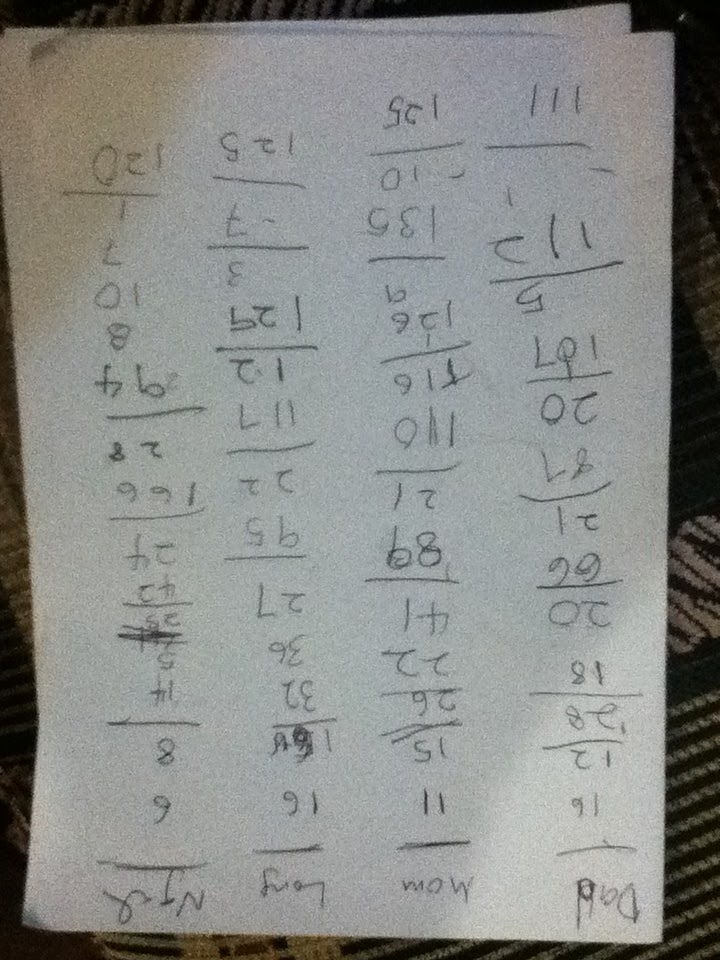 Dad
16
12
28
18
20
66
21
87
20
107
5
112
- 1
111
Mom
11
15
26
22
41
89
21
110
16
126
9
135
- 10
125
16
32
36
27
95
22
117
12
129
3
- 7
125
6
8
14
5
42
24
166
28
94
8
10
7
1
120